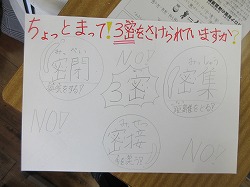 ちょっとまって!3密をさけられていますか?
NO!
みっぺい
密閉
みっしゅう
密集
3密
距離をとる!
みっせつ
密接
NO!
NO!